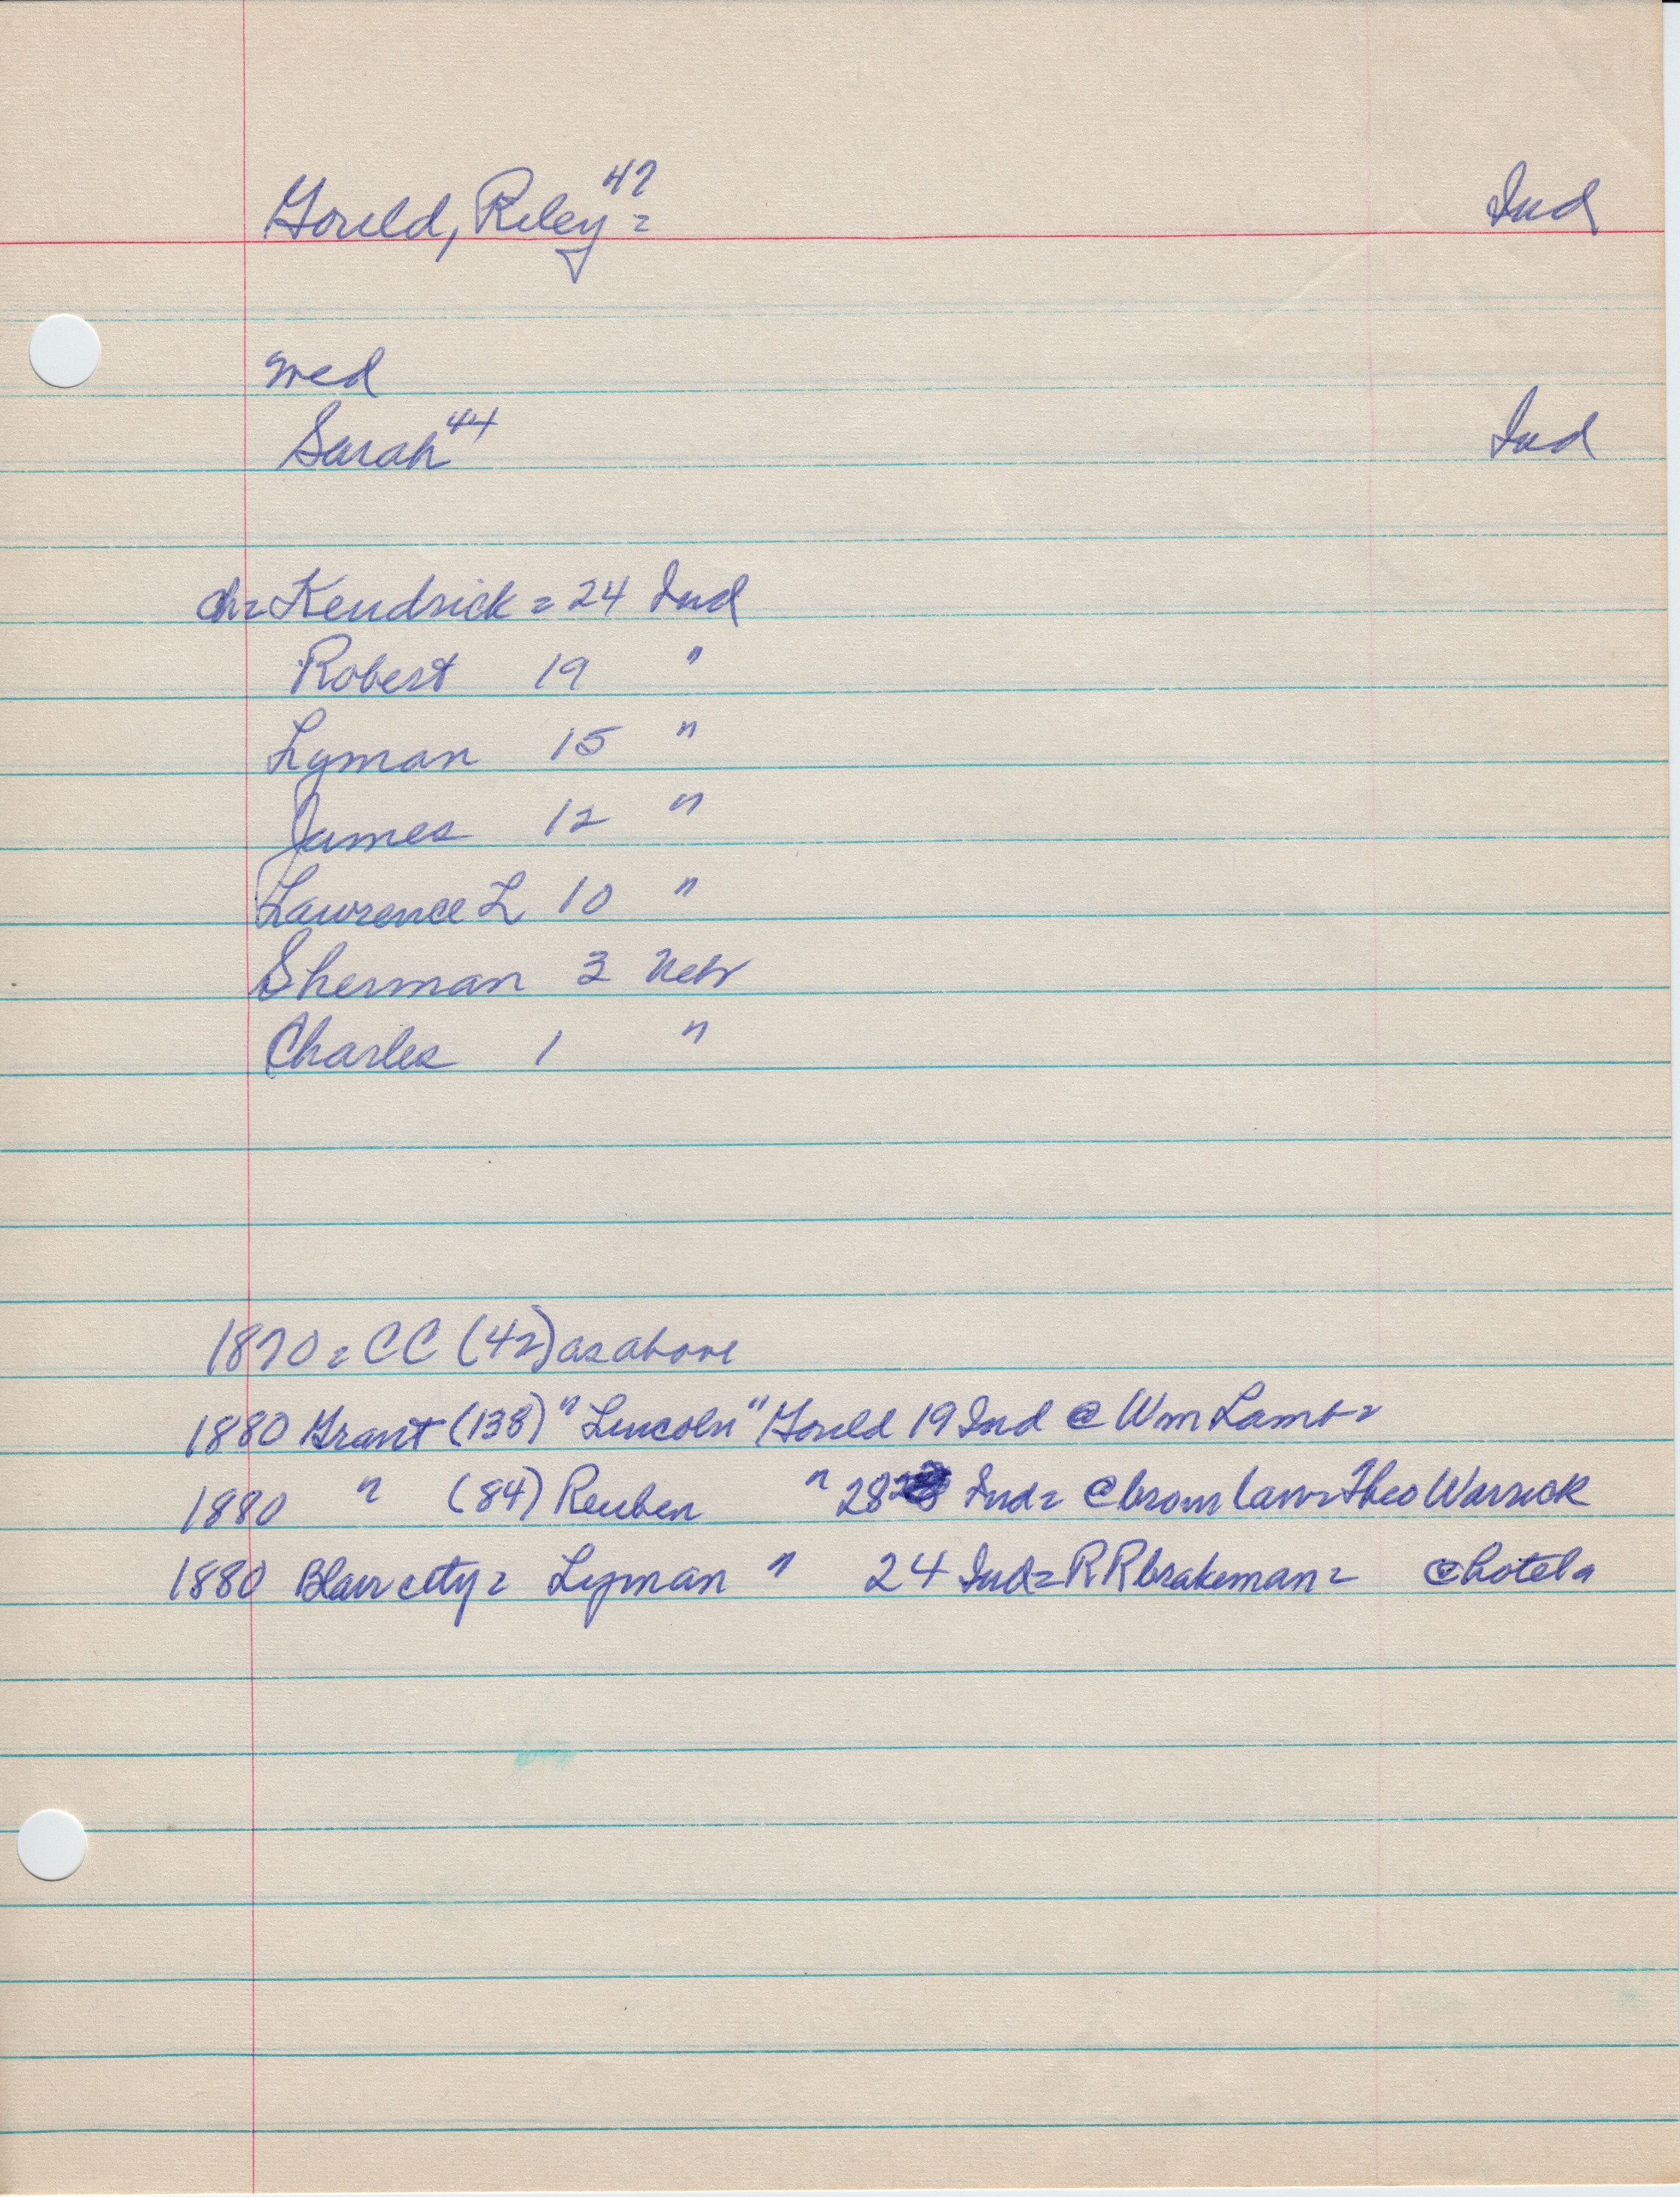 Gould, Riley 47 = Ind
med
Sarah 44 Ind
ch= Kendrick = 24 Ind
Robert 19 "
Lyman 15 "
James 12 "
Lawrence L 10 "
Sherman 3 Nebr
Charles 1 "
1870 = CC (42) as above
1880 Grant (138) "Lincoln" Gould 19 Ind @ Wm Lamb =
1880 " (84) Reuben " 28 Ind = @ bro in law = Theo Warrick
1880 Blair city = Lyman " 24 Ind = RR brakeman = @ hotel =